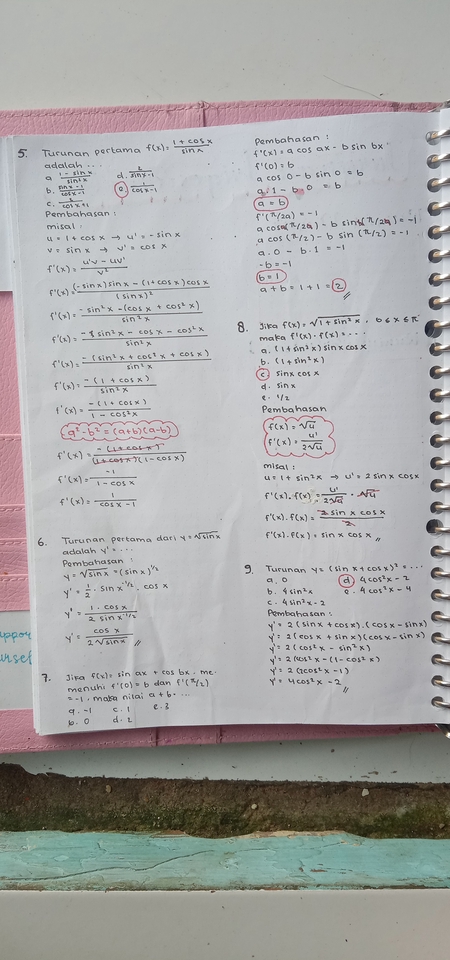 5. Turunan pertama f(x) = (1 + cos x)/(sin x)
adalah ...
a. (1 - sin x)/(sin x) d. 2/(sin x - 1)
b. (sin x - 1)/(cos x - 1) e. 1/(cos x - 1)
c. 2/(cos x + 1)
Pembahasan :
misal :
u = 1 + cos x → u' = - sin x
v = sin x → v' = cos x
f'(x) = (u'v - uv')/v²
f'(x) = ((-sin x) sin x - (1 + cos x) cos x)/(sin x)²
f'(x) = (-sin² x - (cos x + cos² x))/(sin² x)
f'(x) = (-sin² x - cos x - cos² x)/(sin² x)
f'(x) = (-(sin² x + cos² x + cos x))/(sin² x)
f'(x) = (-(1 + cos x))/(sin² x)
f'(x) = (-(1 + cos x))/(1 - cos² x)
a² - b² = (a+b)(a-b)
f'(x) = (-(1 + cos x))/((1 + cos x)(1 - cos x))
f'(x) = -1/(1 - cos x)
f'(x) = 1/(cos x - 1)
6. Turunan pertama dari y = √sin x
adalah y' = ...
Pembahasan :
y = √sin x = (sin x)^1/2
y' = 1/2 · sin x^-1/2 · cos x
y' = (1 · cos x)/(2 sin x^1/2)
y' = cos x/(2√sin x)
7. Jika f(x) = sin ax + cos bx . me-
menuhi f'(0) = b dan f'(π/2)
= -1 . maka nilai a + b ...
a. -1 c. 1 e. 3
b. 0 d. 2
Pembahasan :
f'(x) = a cos ax - b sin bx
f'(0) = b
a cos 0 - b sin 0 = b
a . 1 - b . 0 = b
a = b
f'(π/2a) = -1
a cos a(π/2a) - b sin b(π/2a) = -1
a cos (π/2) - b sin (π/2) = -1
a . 0 - b . 1 = -1
-b = -1
b = 1
a + b = 1 + 1 = 2
8. Jika f(x) = √1 + sin² x . 0 ≤ x ≤ π
maka f'(x) . f(x) = ...
a. (1 + sin² x) sin x cos x
b. (1 + sin² x)
c. sin x cos x
d. sin x
e. 1/2
Pembahasan
f(x) = √u
f'(x) = u'/(2√u)
misal :
u = 1 + sin² x → u' = 2 sin x cos x
f'(x) . f(x) = u'/(2√u) · √u
f'(x) . f(x) = (2 sin x cos x)/2
f'(x) . f(x) = sin x cos x
9. Turunan y = (sin x + cos x)² = ...
a. 0 d. 4 cos² x - 2
b. 4 sin² x e. 4 cos² x - 4
c. 4 sin² x - 2
Pembahasan :
y' = 2 (sin x + cos x) . (cos x - sin x)
y' = 2 (cos x + sin x)(cos x - sin x)
y' = 2 (cos² x - sin² x)
y' = 2 (cos² x - (1 - cos² x)
y' = 2 (2 cos² x - 1)
y' = 4 cos² x - 2